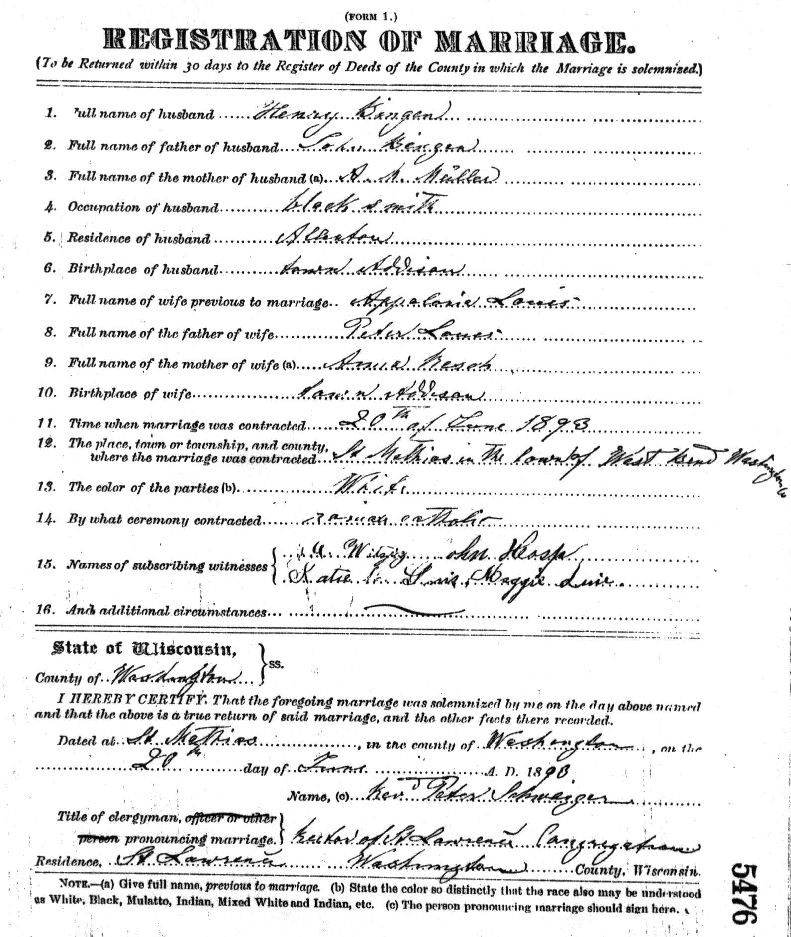 (FORM 1.)
REGISTRATION OF MARRIAGE.
(To be Returned within 30 days to the Register of Deeds of the County in which the Marriage is solemnized.)
1. Full name of husband Henry Bingen
2. Full name of father of husband John Bingen
3. Full name of the mother of husband (a) A. M. Müller
4. Occupation of husband black smith
5. Residence of husband Allenton
6. Birthplace of husband town Addison
7. Full name of wife previous to marriage Appolonia Louis
8. Full name of the father of wife Peter Loues
9. Full name of the mother of wife (a) Anna Resch
10. Birthplace of wife town Addison
11. Time when marriage was contracted 20th of June 1893
12. The place, town or township, and county,
where the marriage was contracted St Mathias in the town of West bend Washington Co
13. The color of the parties (b) White
14. By what ceremony contracted roman catholic
15. Names of subscribing witnesses John
Katie Maggie
16. And additional circumstances
State of Wisconsin, ss.
County of Washington
I HEREBY CERTIFY, That the foregoing marriage was solemnized by me on the day above named
and that the above is a true return of said marriage, and the other facts there recorded.
Dated at St. Mathias, in the county of Washington, on the
20th day of June A. D. 1893
Name, (c) Rev. Peter Schweizer
Title of clergyman, officer or other
person pronouncing marriage. Rector of St Lawrence Congregation
Residence, St Lawrence Washington County, Wisconsin.
NOTE.—(a) Give full name, previous to marriage. (b) State the color so distinctly that the race also may be understood
as White, Black, Mulatto, Indian, Mixed White and Indian, etc. (c) The person pronouncing marriage should sign here.
5476